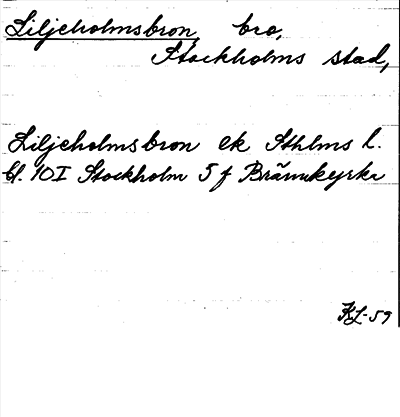 Liljeholmsbron, bro,
Stockholms stad,
Liljeholmsbron ek Sthlms l.
bl. 10I Stockholm 5 f Brännkyrka
KL-59